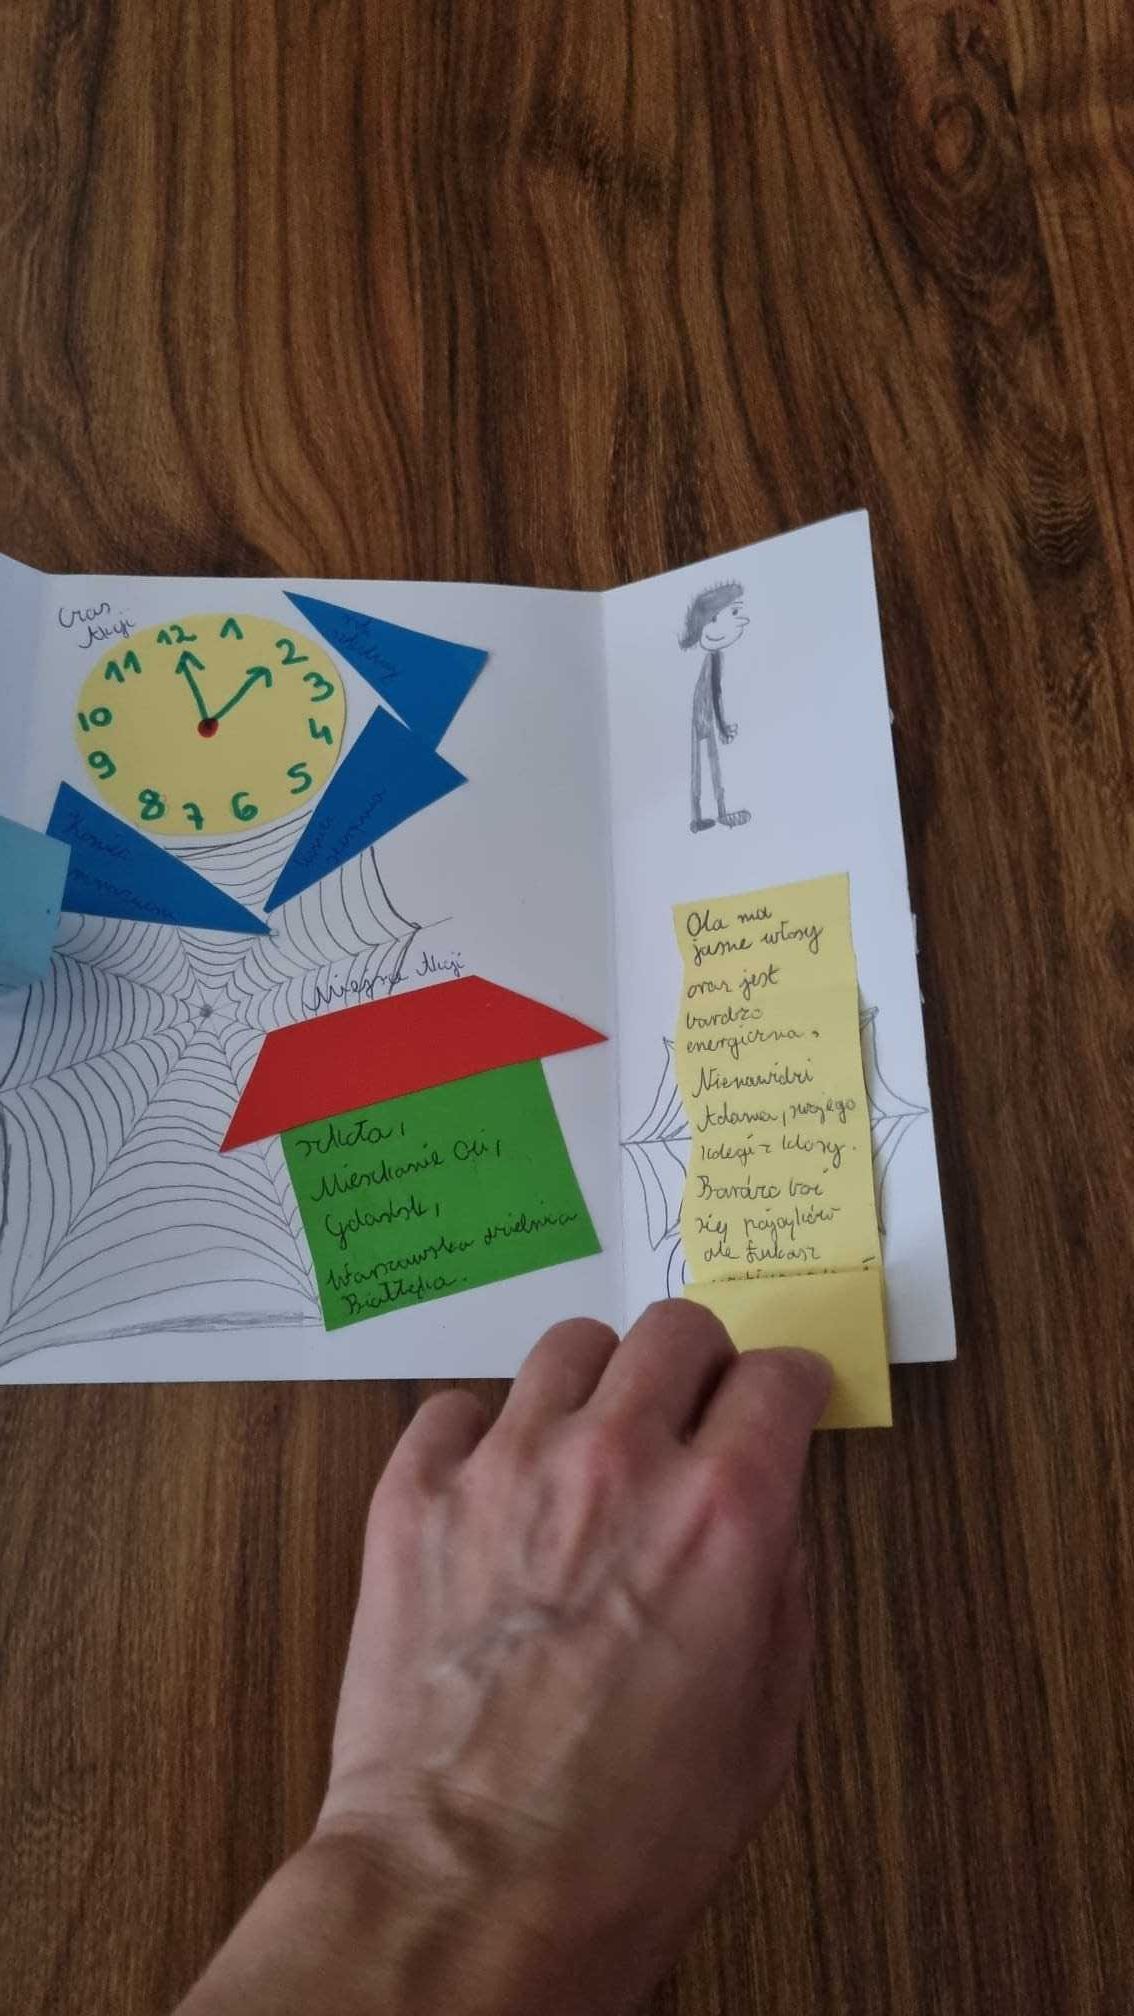 Czas
Akcji
12
1
2
3
4
5
6
7
8
9
10
11
rok
szkolny
koniec
września
Miejsce Akcji
szkoła,
Mieszkanie Oli,
Gdańsk,
Warszawska dzielnica
Białłęka.
Ola ma
jasne włosy
oraz jest
bardzo
energiczna,
Nienawidzi
Adama, swojego
kolegi z klasy.
Bardzo boi
się pająków
ale Łukasz